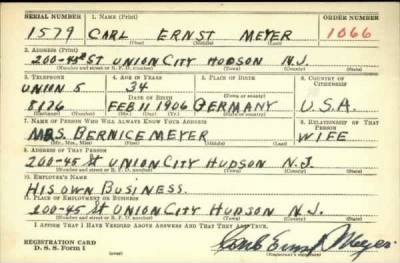 SERIAL NUMBER 1. NAME (Print) ORDER NUMBER
1579 CARL ERNST MEYER 1066
(First) (Middle) (Last)
2. ADDRESS (Print)
200-45th ST UNION CITY HUDSON N.J.
(Number and street or R. F. D. number) (Town) (County) (State)
3. TELEPHONE 4. AGE IN YEARS 5. PLACE OF BIRTH 6. COUNTRY OF CITIZENSHIP
UNION 5 34
DATE OF BIRTH (Town or county)
8126 FEB 11 1906 GERMANY U.S.A.
(Mo.) (Day) (Yr.) (State or country)
7. NAME OF PERSON WHO WILL ALWAYS KNOW YOUR ADDRESS 8. RELATIONSHIP OF THAT PERSON
MRS. BERNICE MEYER WIFE
(Mr., Mrs., Miss) (First) (Middle) (Last)
9. ADDRESS OF THAT PERSON
200-45 St UNION CITY HUDSON N.J.
(Number and street or R. F. D. number) (Town) (County) (State)
10. EMPLOYER'S NAME
HIS OWN BUSINESS.
11. PLACE OF EMPLOYMENT OR BUSINESS
200-45 St UNION CITY HUDSON N.J.
(Number and street or R. F. D. number) (Town) (County) (State)
I AFFIRM THAT I HAVE VERIFIED ABOVE ANSWERS AND THAT THEY ARE TRUE.
REGISTRATION CARD
D. S. S. Form 1 (over) Carl Ernst Meyer
(Registrant's signature)